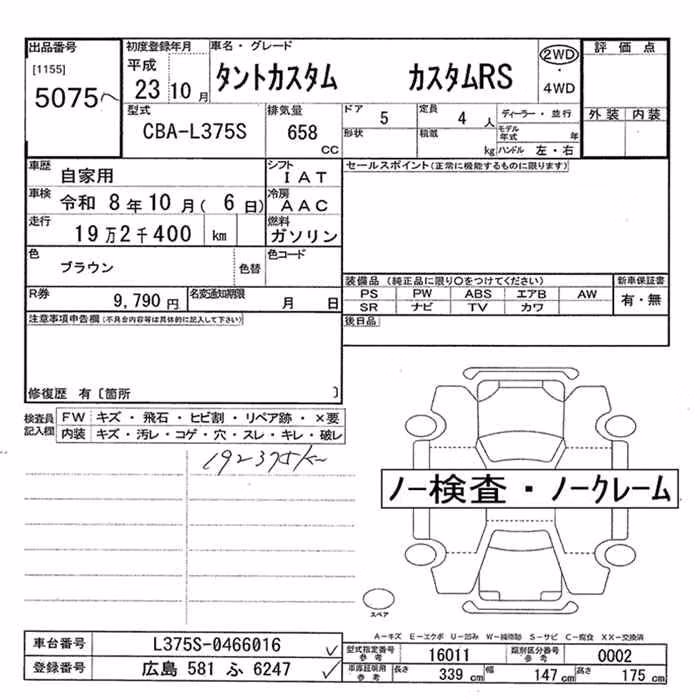 出品番号
[1155]
5075
初度登録年月
平成
23 10 月
車名・グレード
タントカスタム カスタムRS
2WD
・
4WD
評価点
外装 内装
型式
CBA-L375S
排気量
658
CC
ドア 5
形状
定員 4 人
積載 kg
ディーラー・並行
モデル年式 年
ハンドル 左・右
車歴 自家用
シフト IAT
車検 令和 8 年 10 月( 6 日)
冷房 AAC
走行 19 万 2 千 400 km
燃料 ガソリン
色 ブラウン
色替
色コード
R券 9,790 円
名変通知期限 月 日
セールスポイント(正常に機能するものに限ります)
装備品 (純正品に限り○をつけてください)
新車保証書
PS PW ABS エアB AW
SR ナビ TV カワ
有・無
後日品
注意事項申告欄(不具合内容等は具体的に記入して下さい)
修復歴 有〔箇所 〕
検査員記入欄
FW キズ・飛石・ヒビ割・リペア跡・×要
内装 キズ・汚レ・コゲ・穴・スレ・キレ・破レ
192375K
ノー検査・ノークレーム
スペア
A-キズ E-エクボ U-凹み W-補修跡 S-サビ C-腐食 XX-交換済
車台番号 L375S-0466016
登録番号 広島 581 ふ 6247
型式指定番号参考 16011
類別区分番号参考 0002
車庫証明用参考 長さ 339 cm 幅 147 cm 高さ 175 cm